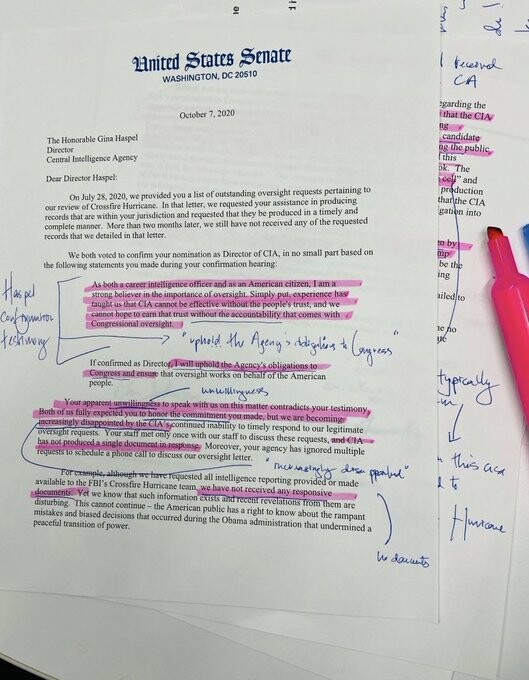 United States Senate
WASHINGTON, DC 20510
October 7, 2020
The Honorable Gina Haspel
Director
Central Intelligence Agency
Dear Director Haspel:
On July 28, 2020, we provided you a list of outstanding oversight requests pertaining to
our review of Crossfire Hurricane. In that letter, we requested your assistance in producing
records that are within your jurisdiction and requested that they be produced in a timely and
complete manner. More than two months later, we still have not received any of the requested
records that we detailed in that letter.
We both voted to confirm your nomination as Director of CIA, in no small part based on
the following statements you made during your confirmation hearing:
As both a career intelligence officer and as an American citizen, I am a
strong believer in the importance of oversight. Simply put, experience has
taught us that CIA cannot be effective without the people's trust, and we
cannot hope to earn that trust without the accountability that comes with
Congressional oversight.
Haspel
Confirmation
testimony
"uphold the Agency's obligations to Congress"
If confirmed as Director, I will uphold the Agency's obligations to
Congress and ensure that oversight works on behalf of the American
people.
unwillingness
Your apparent unwillingness to speak with us on this matter contradicts your testimony.
Both of us fully expected you to honor the commitment you made, but we are becoming
increasingly disappointed by the CIA's continued inability to timely respond to our legitimate
oversight requests. Your staff met only once with our staff to discuss these requests, and CIA
has not produced a single document in response. Moreover, your agency has ignored multiple
requests to schedule a phone call to discuss our oversight letter.
"increasingly disappointed"
For example, although we have requested all intelligence reporting provided or made
available to the FBI's Crossfire Hurricane team, we have not received any responsive
documents. Yet we know that such information exists and recent revelations from them are
disturbing. This cannot continue – the American public has a right to know about the rampant
mistakes and biased decisions that occurred during the Obama administration that undermined a
peaceful transition of power.
no documents
received
CIA
egarding the
that the CIA
ng
candidate
ng the public
this
ok. The
cell" and
production
that the CIA
gation into
en by
mp
be the
ing
ailed to
he no
typically
this case
to
Hurricane